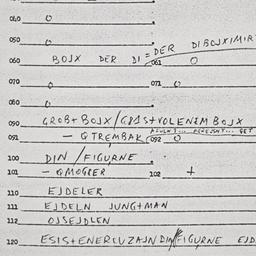 040 0
050 0
060 BOJX DER DI = DER DIBOJXIMIR
061 0
070 0 071 0
080 0
090 GROB+BOJX/G81S+VOLENEM BOJX
091 - GTREMBAK 092 0
100 DIN / FIGURNE
101 - GMOGLER 102 +
110 EJDELER
111 EJDELN JUNG+MAN
112 OJSEJDLEN
120 ESIS+ENERCUZAJN DIN/FIGURNE EJD